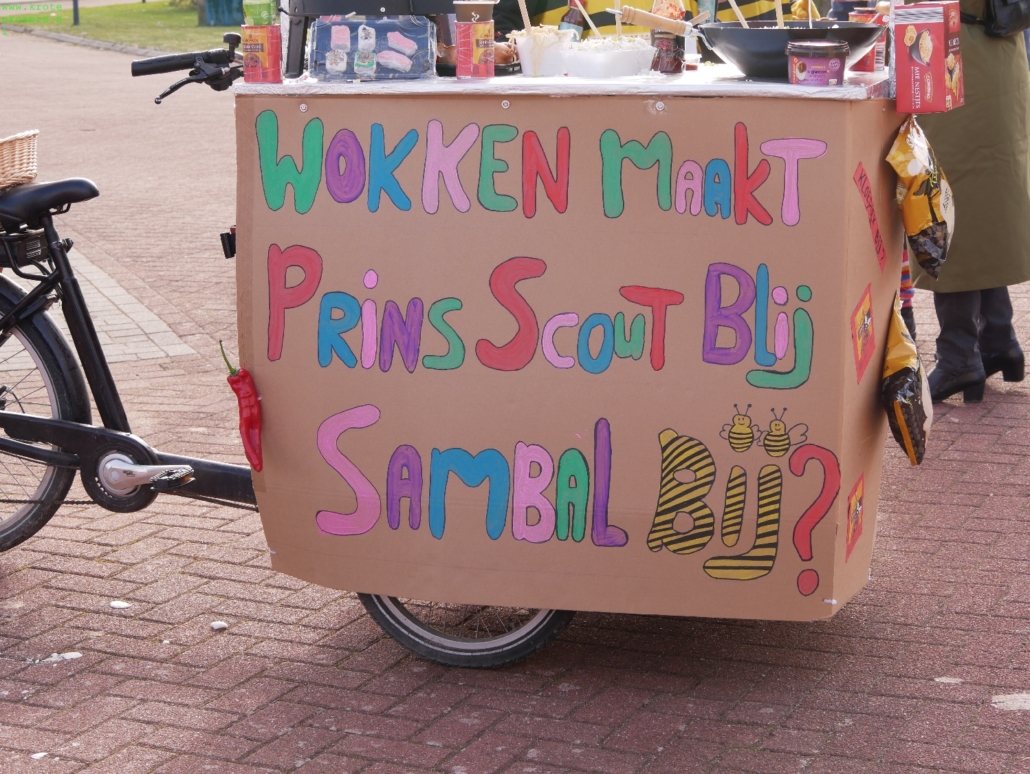 WOKKEN MAAKT
PRINS SCOUT BLIJ
SAMBAL BIJ?